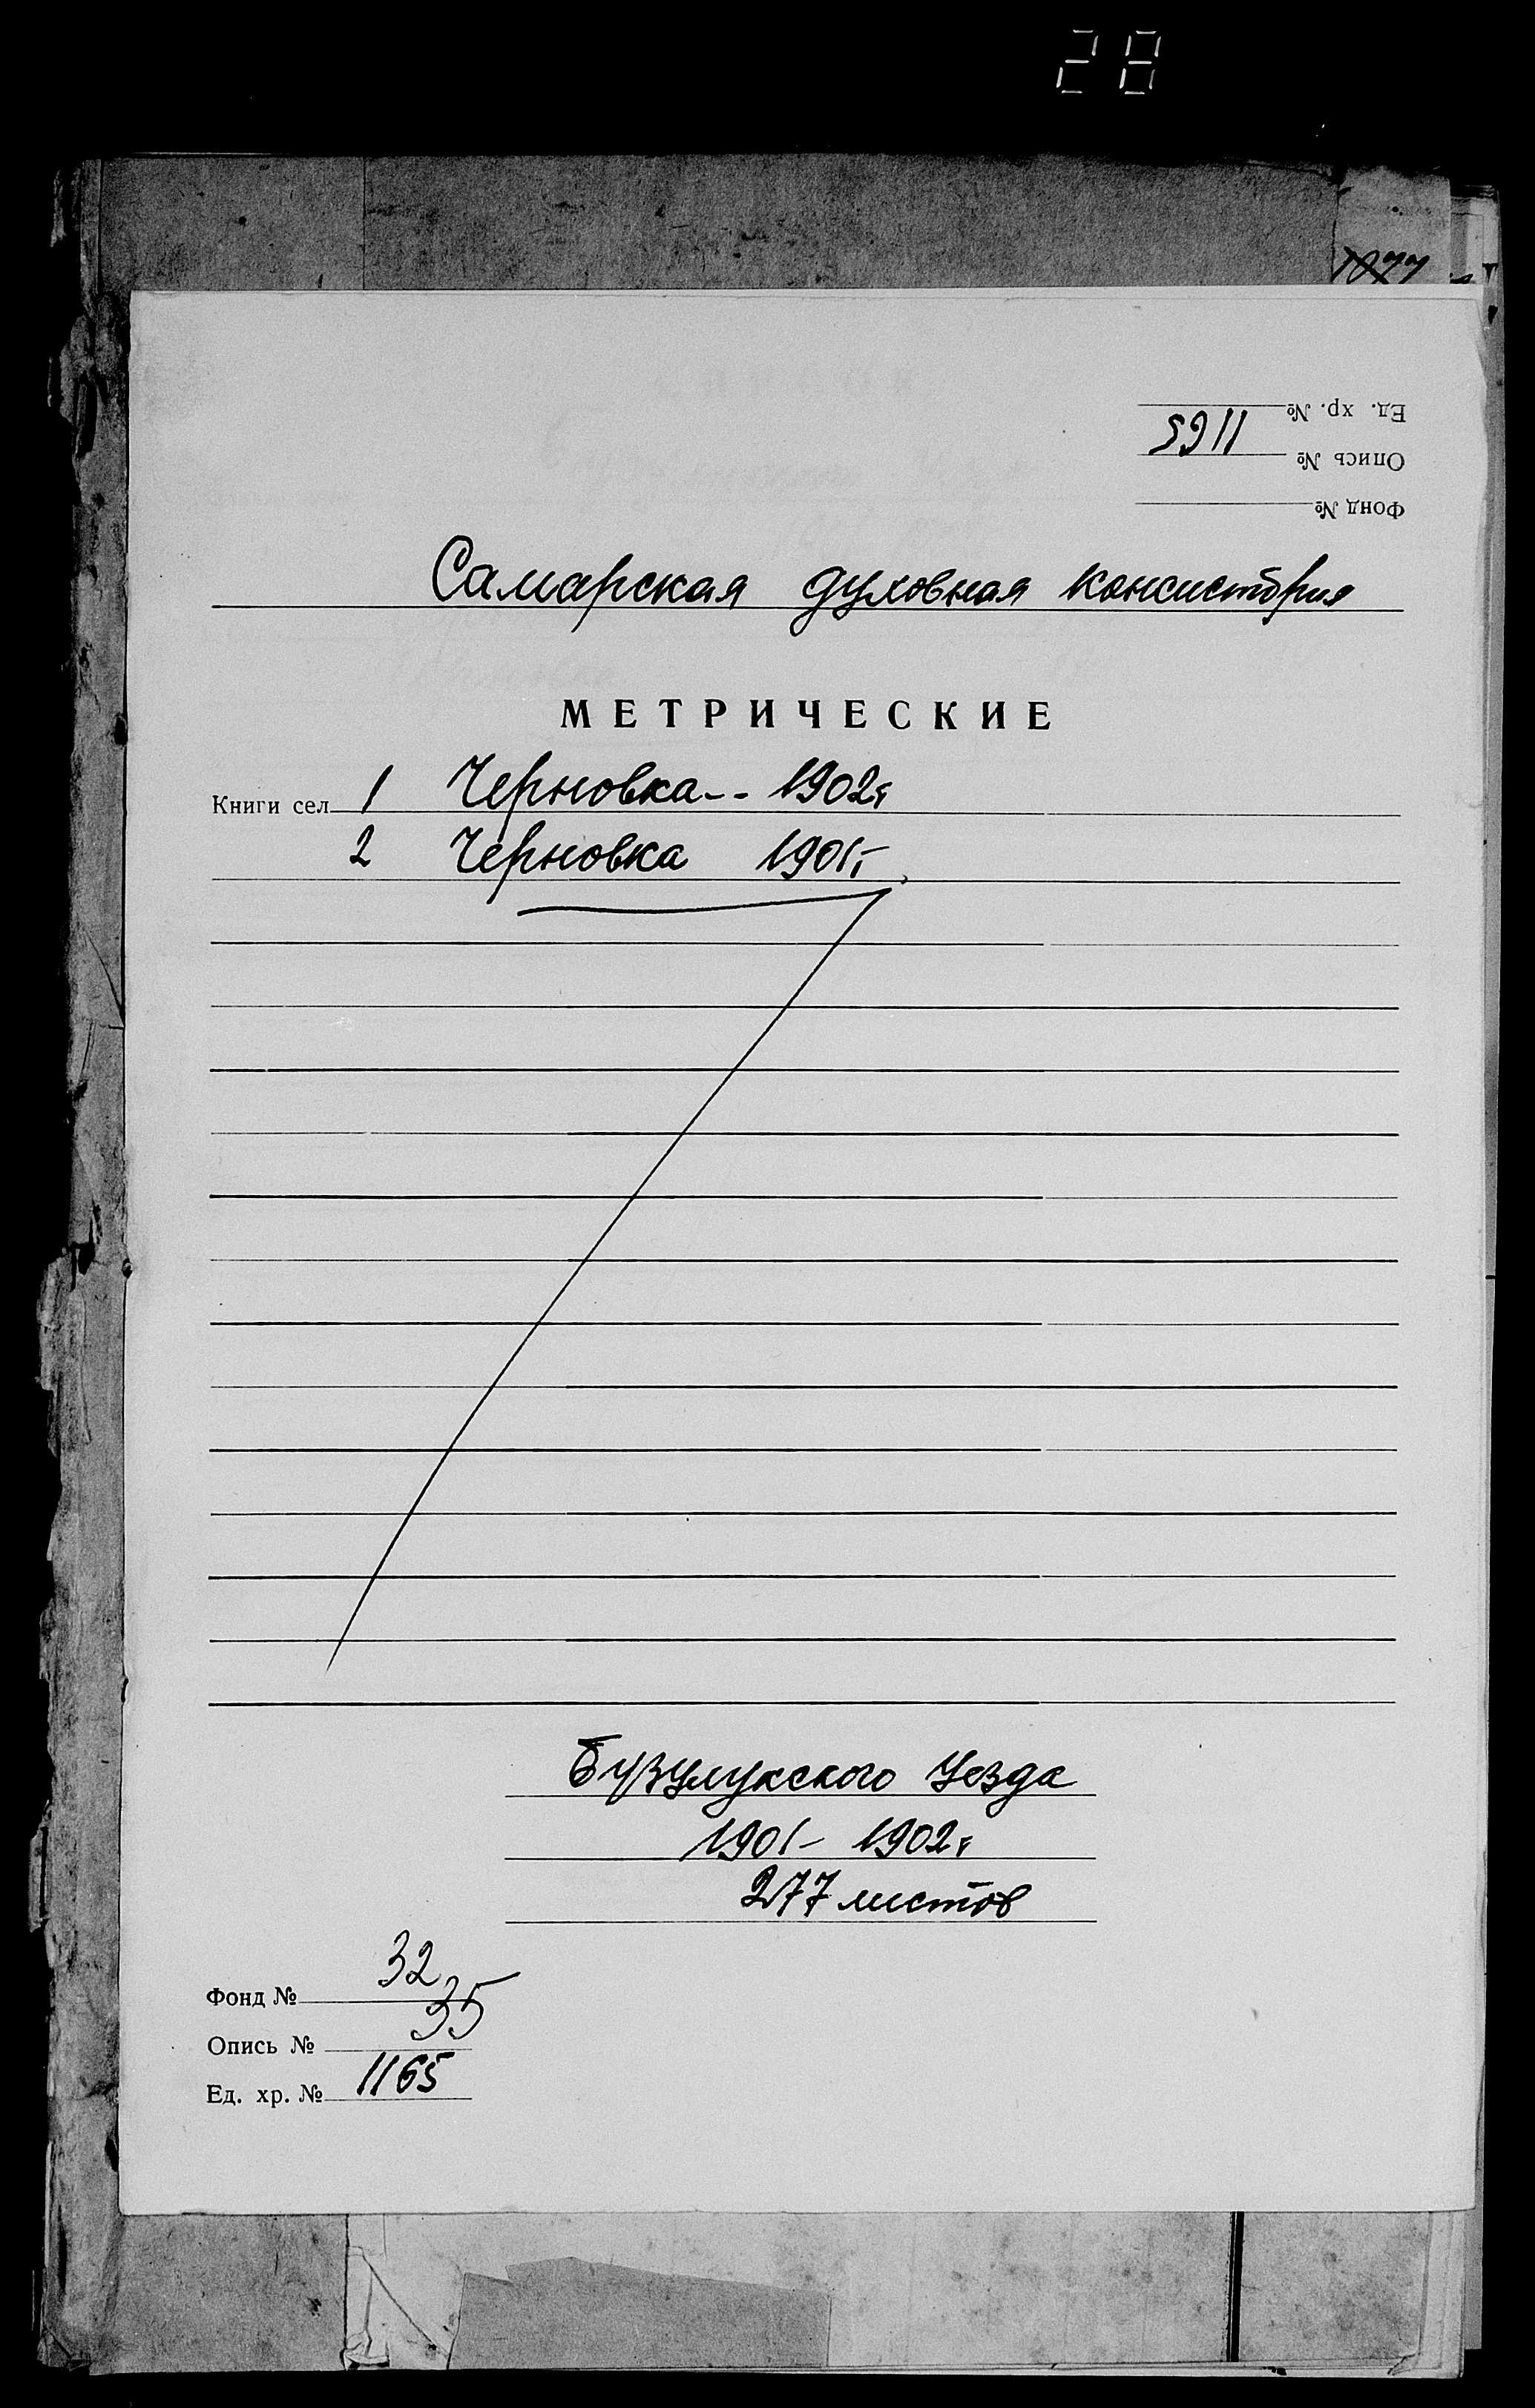 28
1877
Ед. хр. №
Опись № 1165
Фонд №
Самарская духовная консистория
МЕТРИЧЕСКИЕ
Книги сел 1 Черновка-- 1902г
2 Черновка 1901г
Бузулукского Уезда
1901- 1902г
277 листов
Фонд № 32
Опись № 35
Ед. хр. № 1165